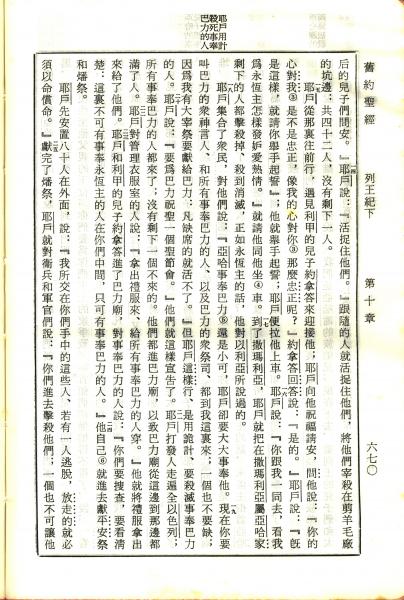 舊約聖經　列王紀下　第十章　六七〇
耶戶用計
殺死事奉
巴力的人
后的兒子們問安。』耶戶說：『活捉住他們。』跟隨的人就活捉住他們，將他們宰殺在剪羊毛廠
的坑邊：共四十二人，沒有剩下一人。
耶戶從那裏往前行，遇見利甲的兒子約拿答來迎接他；耶戶向他祝福請安，問他說：『你的
心對我③是不是忠正，像我的心對你③那麼忠正呢？』約拿答回答說：『是的。』耶戶說：『旣
是這樣，就請你舉手起誓』；他就舉手起誓；耶戶便拉他上車。耶戶說：『你跟我一同去，看我
爲永恆主怎樣發妒愛熱情。』就請他同他坐④車。到了撒瑪利亞，耶戶就把在撒瑪利亞屬亞哈家
剩下的人都擊殺掉、殺到消滅，正如永恆主的話，他對以利亞所說過的。
耶戶集合了衆民，對他們說：『亞哈事奉巴力⑤還是小可，耶戶卻要大大事奉他。現在你要
叫巴力的衆神言人、和所有事奉巴力的人、以及巴力的衆祭司、都到我這裏來；一個也不要缺，
因爲我有大宰祭要獻給巴力：凡缺席的就活不了。』但耶戶這樣行、是用詭計、要殺滅事奉巴力
的人。耶戶說：『要爲巴力祝聖一個聖節會。』他們就這樣宣告了。耶戶打發人走遍全以色列；
所有事奉巴力的人都來了；沒有剩下一個不來的。他們都進巴力廟，以致巴力廟從這邊到那邊都
滿了人。耶戶對管理衣服室的人說：『拿出禮服來、給所有事奉巴力的人穿。』他就將禮服拿出
來給了他們。耶戶和利甲的兒子約拿答進了巴力廟，對事奉巴力的人說：『你們要搜查，要看清
楚：這裏不可有事奉永恆主的人在你們中間，只可有事奉巴力的人。』他自己⑥就進去獻平安祭
和燔祭。
耶戶先安置八十人在外面，說：『我所交在你們手中的這些人、若有一人逃脫，放走的就必
須以命償命。』獻完了燔祭，耶戶就對衛兵和軍官們說：『你們進去擊殺他們；一個也不可讓他